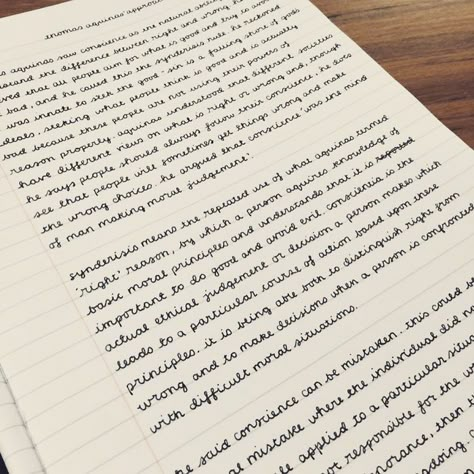 thomas aquinas approa
aquinas saw conscience as the natural abili
stand the difference between right and wrong, he
ved that all people aim for what is good and try to avoid
bad, and he called this the synderisis rule. he reckoned
was innate to seek the good - sin is a falling short of gods
deals, seeking what people think is good and is actually
bad because these people are not using their powers of
reason properly. aquinas understood that different societies
have different views on what is right or wrong and, though
he says people should always follow their conscience, he does
see that people will sometimes get things wrong and make
the wrong choices. he argued that conscience was 'the mind
of man making moral judgements'.
synderisis means the repeated use of what aquinas termed
'right' reason, by which a person aquires knowledge of
basic moral principles and understands that it is
important to do good and avoid evil. conscientia is the
actual ethical judgement or decision a person makes which
leads to a particular course of action based upon these
principles. it is being able both to distinguish right from
wrong and to make decisions when a person is confronted
with difficult moral situations.
he said conscience can be mistaken. this could b
al mistake where the individual did no
e applied to a particular situa
ot responsible for the w
norance, then t
doing.